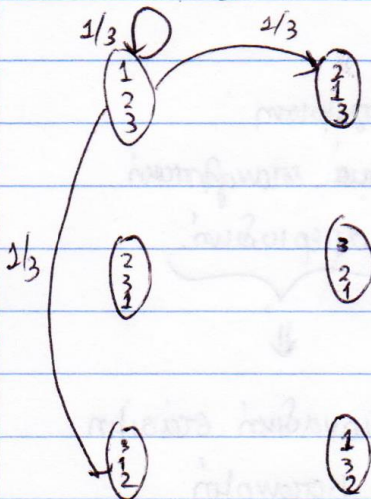 1/3
1/3
1
2
3
2
1
3
1/3
2
3
1
3
2
1
3
1
2
1
3
2